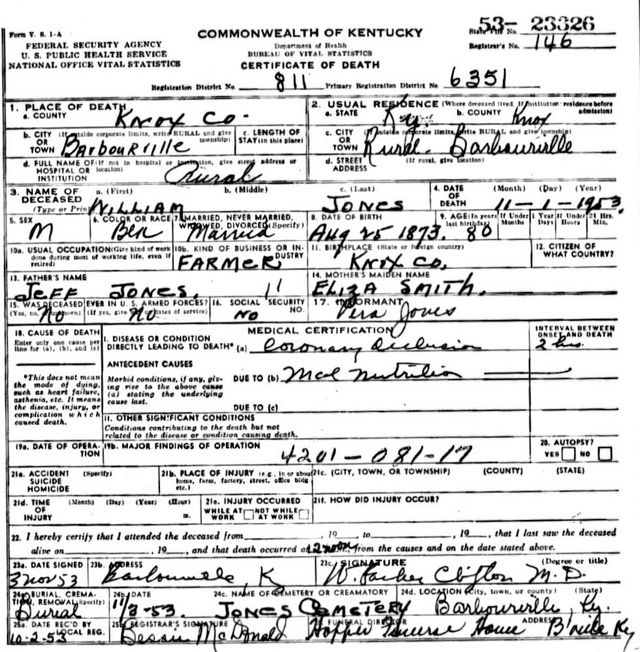 Form V. S. 1-A
FEDERAL SECURITY AGENCY
U. S. PUBLIC HEALTH SERVICE
NATIONAL OFFICE VITAL STATISTICS
COMMONWEALTH OF KENTUCKY
Department of Health
BUREAU OF VITAL STATISTICS
CERTIFICATE OF DEATH
53- 23326
State File No.
Registrar's No. 146
Registration District No. 811 Primary Registration District No. 6351
1. PLACE OF DEATH
a. COUNTY Knox Co.
2. USUAL RESIDENCE (Where deceased lived. If institution: residence before admission)
a. STATE Ky. b. COUNTY Knox
b. CITY (If outside corporate limits, write RURAL and give township)
OR TOWN Barbourville
c. LENGTH OF STAY (in this place)
c. CITY (If outside corporate limits, write RURAL and give township)
OR TOWN Rural- Barbourville
d. FULL NAME OF (If not in hospital or institution, give street address or location)
HOSPITAL OR INSTITUTION Rural
d. STREET ADDRESS (If rural, give location)
3. NAME OF DECEASED (Type or Print)
a. (First) b. (Middle) c. (Last)
WILLIAM JONES
4. DATE OF DEATH (Month) (Day) (Year)
11-1-1953
5. SEX M
6. COLOR OR RACE
7. MARRIED, NEVER MARRIED, WIDOWED, DIVORCED (Specify) Married
8. DATE OF BIRTH Aug 25 1873
9. AGE (In years last birthday) 80
If Under 1 Year Months Days
If Under 24 Hrs. Hours Min.
10a. USUAL OCCUPATION (Give kind of work done during most of working life, even if retired)
10b. KIND OF BUSINESS OR INDUSTRY
FARMER
11. BIRTHPLACE (State or foreign country)
KNOX CO.
12. CITIZEN OF WHAT COUNTRY?
13. FATHER'S NAME
JEFF JONES
14. MOTHER'S MAIDEN NAME
ELIZA SMITH.
15. WAS DECEASED EVER IN U. S. ARMED FORCES?
(Yes, no, or unknown) (If yes, give war or dates of service)
No No
16. SOCIAL SECURITY NO.
No
17. INFORMANT
Vera Jones
18. CAUSE OF DEATH
Enter only one cause per line for (a), (b), and (c)
MEDICAL CERTIFICATION
INTERVAL BETWEEN ONSET AND DEATH
I. DISEASE OR CONDITION
DIRECTLY LEADING TO DEATH* (a) Coronary Occlusion 2 hrs.
*This does not mean the mode of dying, such as heart failure, asthenia, etc. It means the disease, injury, or complication which caused death.
ANTECEDENT CAUSES
Morbid conditions, if any, giving rise to the above cause (a) stating the underlying cause last.
DUE TO (b) Mal Nutrition
DUE TO (c)
II. OTHER SIGNIFICANT CONDITIONS
Conditions contributing to the death but not related to the disease or condition causing death.
19a. DATE OF OPERATION
19b. MAJOR FINDINGS OF OPERATION
4201-081-17
20. AUTOPSY?
YES NO
21a. ACCIDENT SUICIDE HOMICIDE (Specify)
21b. PLACE OF INJURY (e.g., in or about home, farm, factory, street, office bldg etc.)
21c. (CITY, TOWN, OR TOWNSHIP) (COUNTY) (STATE)
21d. TIME OF INJURY (Month) (Day) (Year) (Hour) m.
21e. INJURY OCCURRED
WHILE AT WORK NOT WHILE AT WORK
21f. HOW DID INJURY OCCUR?
22. I hereby certify that I attended the deceased from , 19 to , 19 , that I last saw the deceased
alive on , 19 , and that death occurred at 12 noon, from the causes and on the date stated above.
23a. DATE SIGNED
3 Nov 53
23b. ADDRESS
Barbourville, K
23c. SIGNATURE (Degree or title)
W. Parker Clifton M.D.
24a. BURIAL, CREMATION, REMOVAL (Specify)
Burial
24b. DATE
11/3-53.
24c. NAME OF CEMETERY OR CREMATORY
JONES CEMETERY
24d. LOCATION (City, town, or county) (State)
Barbourville, Ky.
25a. DATE REC'D BY LOCAL REG.
10-2-53
25b. REGISTRAR'S SIGNATURE
Bessie McDonald
FUNERAL DIRECTOR ADDRESS
Hopper Funeral Home B'ville Ky